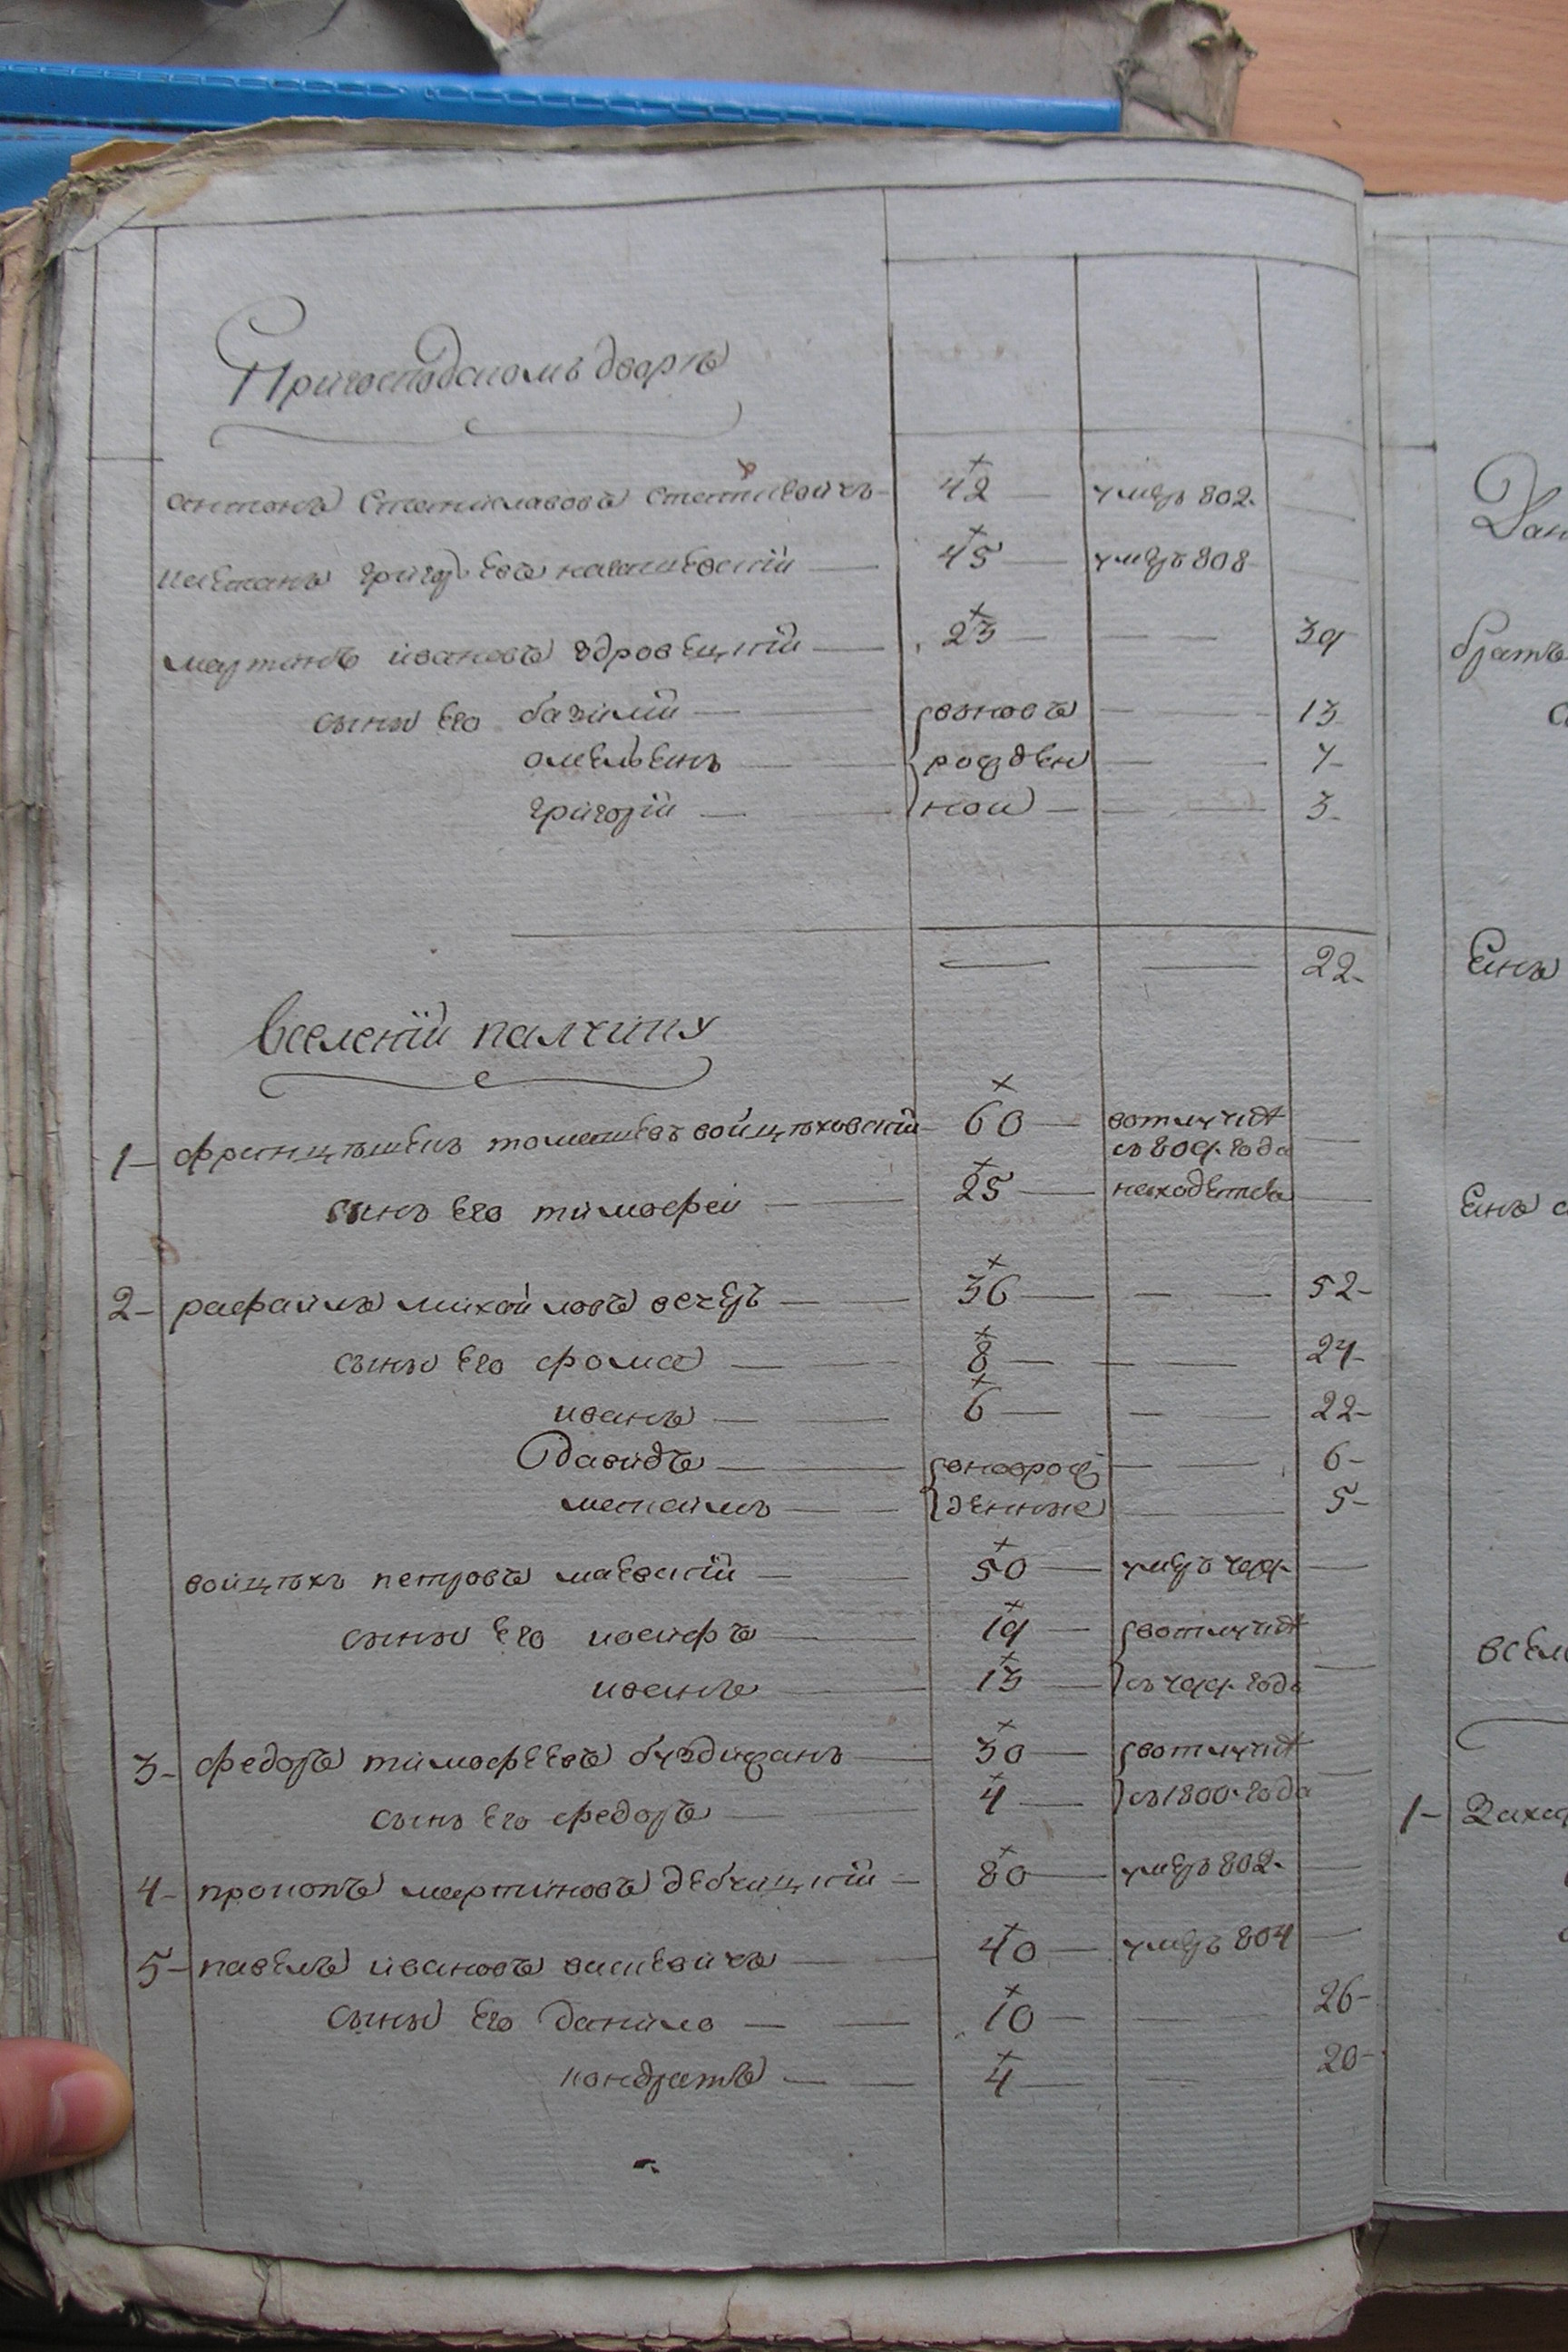 При господскомъ дворѣ
антонъ Станиславовъ статкевичъ 42 умеръ 802.
григорьевъ 45 умеръ 808
мартинъ ивановъ здровецкій 23 39
сыны его базилій вновь 13
омельенъ рожден 7
григорій нои 3
22
вселеніи палчину
1 францышекъ томашевъ войцѣховскій 60 вотлучкѣ
съ 809. года
сынъ его тимофеи 25 находетса
2 рафаилъ михайловъ вечеръ 36 52
сыны его фома 8 24
иванъ 6 22
Давидъ вноврож 6
михаилъ денные 5
войцѣхъ петровъ маевскій 50 умеръ 799.
сыны его иосифъ 19 вотлучкѣ
иванъ 13 съ 799. года
3 федоръ тимофеевъ буздиганъ 30 вотлучкѣ
сынъ его федоръ 4 съ 1800. года
4 прокопъ мартиновъ дебчицкій 80 умеръ 802.
5 павелъ ивановъ васкевичъ 40 умеръ 804
сыны его данило 10 26
кондратъ 4 20
братъ
Енъ
Енъ
всел
1 Захар